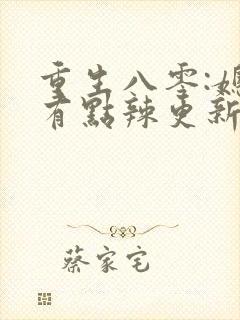 重生八零:媳
有點辣更新
蔡家宅